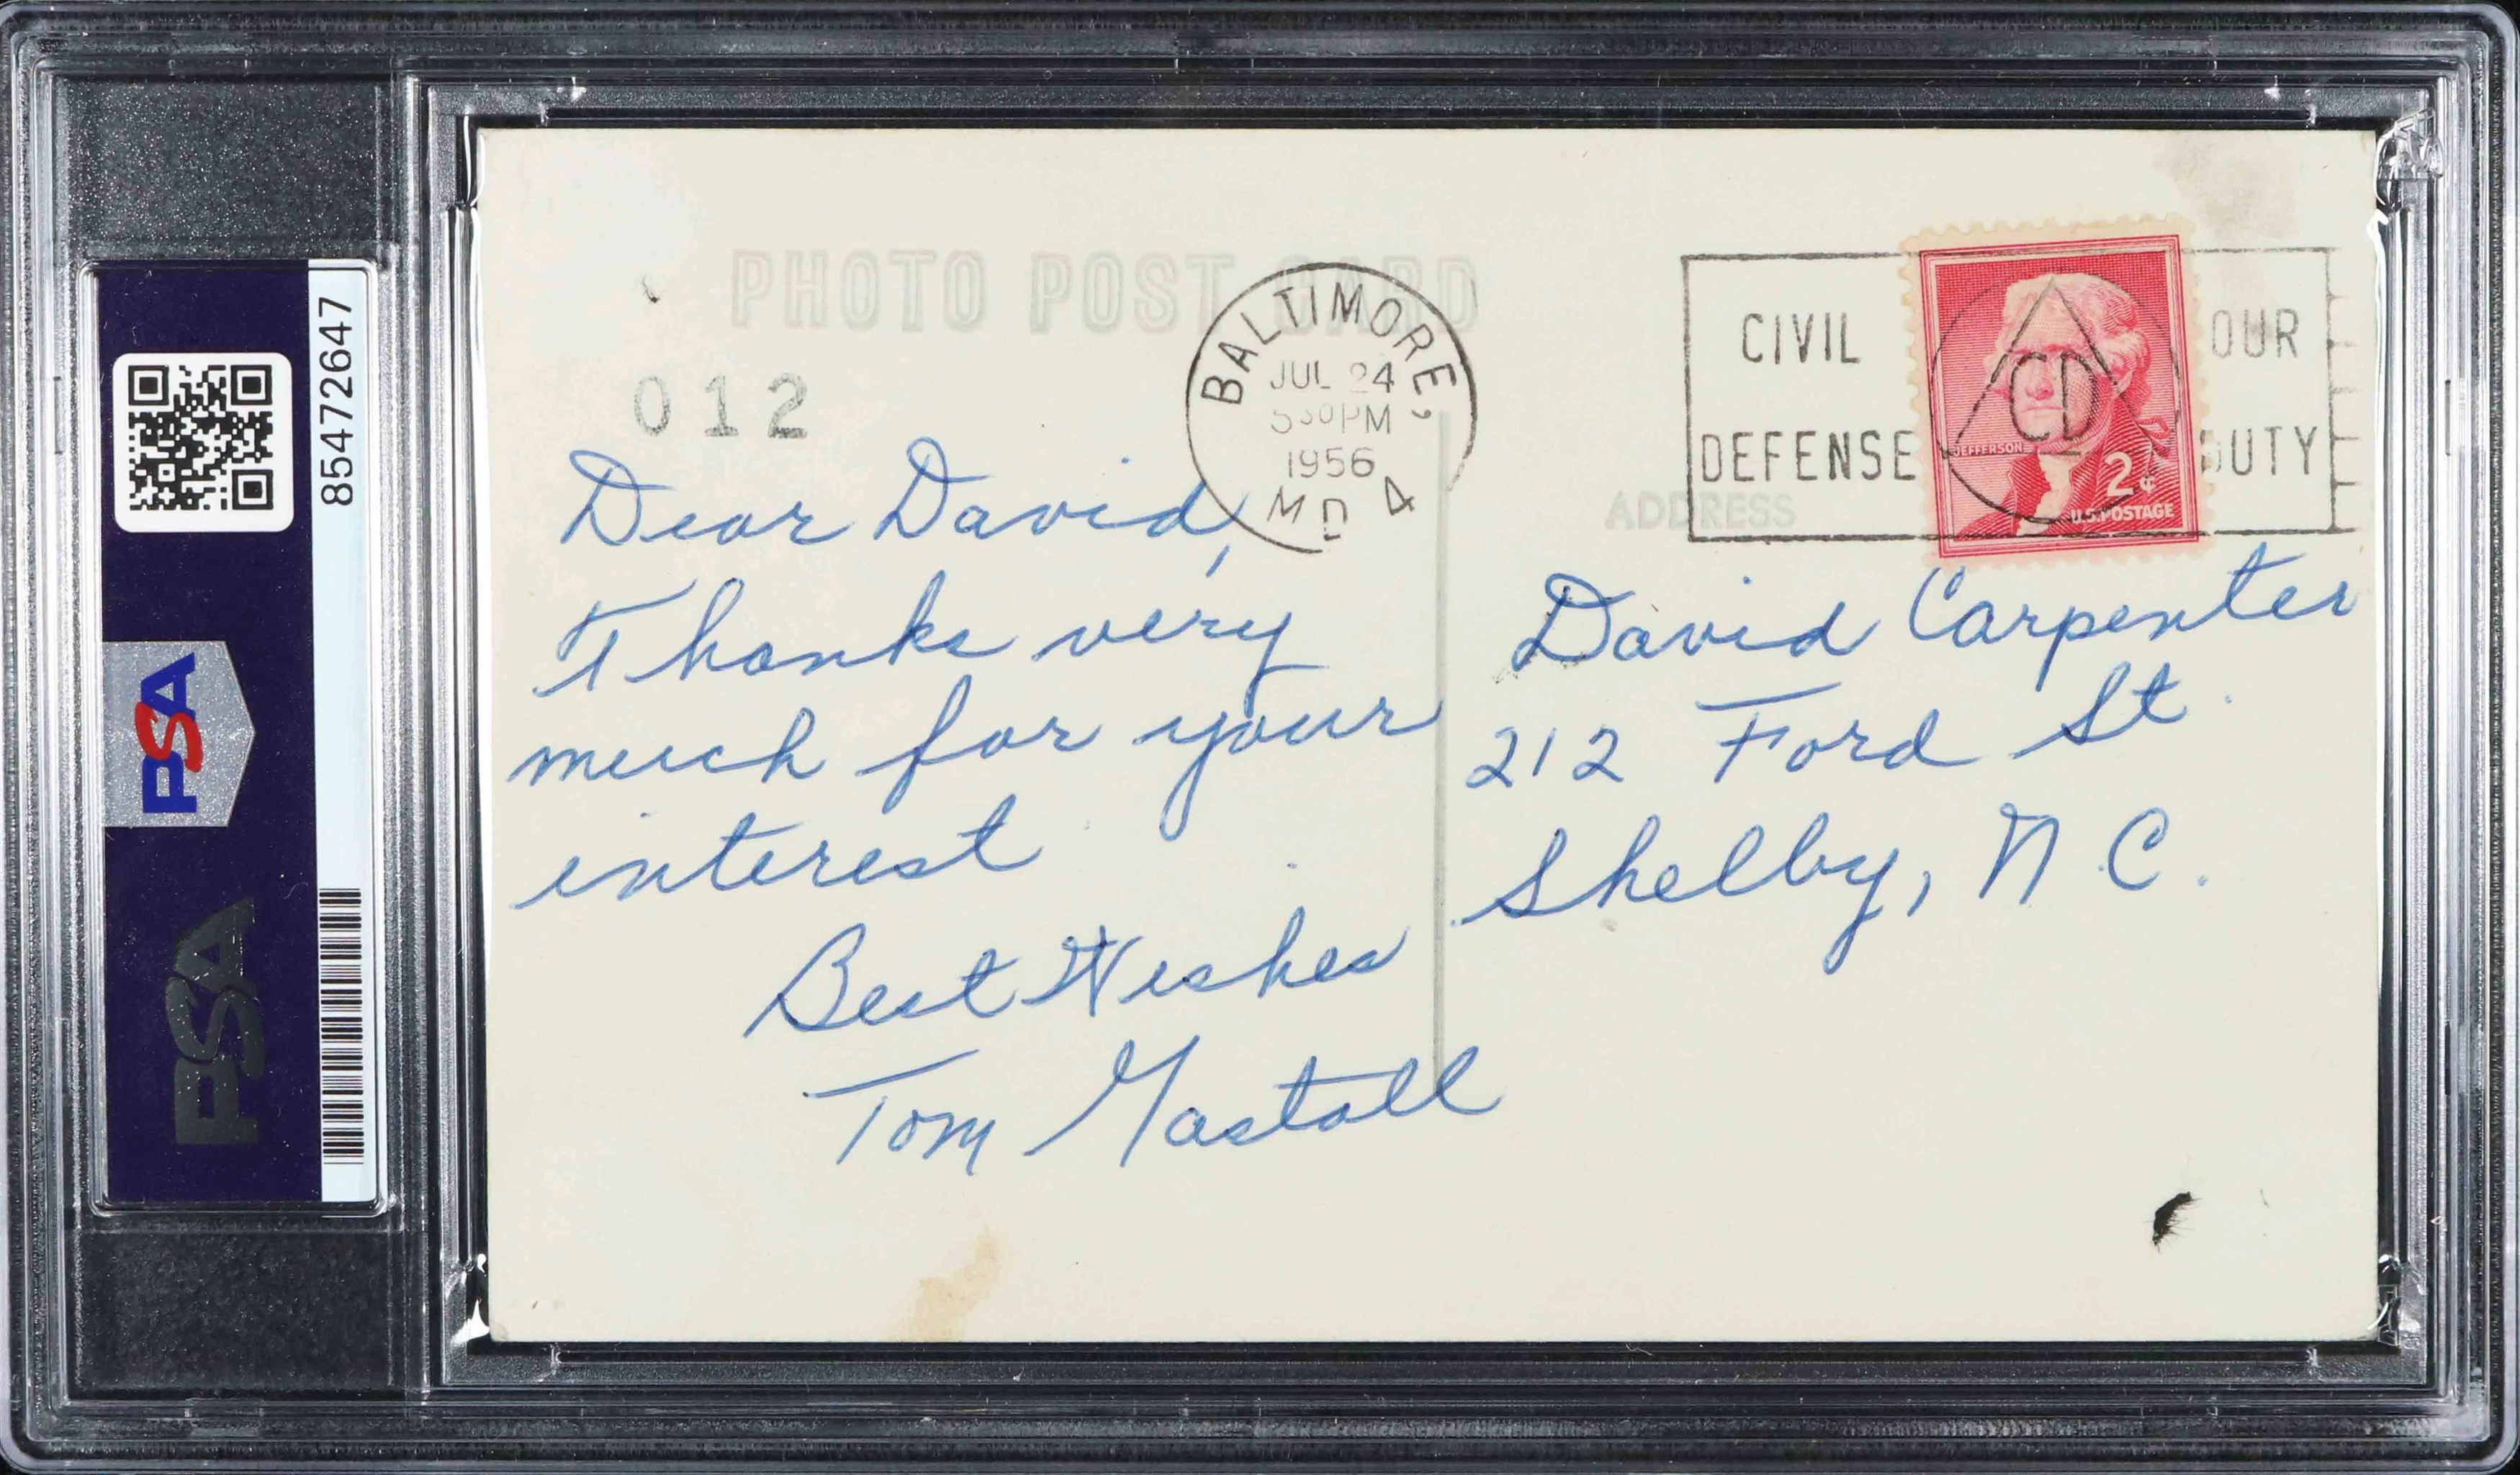 85472647
PSA
PSA
PHOTO POST CARD
012
BALTIMORE,
JUL 24
530PM
1956
MD 4
CIVIL
DEFENSE
CD
OUR
DUTY
JEFFERSON
2¢
U.S. POSTAGE
ADDRESS
Dear David,
Thanks very
much for your
interest
Best Wishes
Tom Gastall
David Carpenter
212 Ford St.
Shelby, N.C.